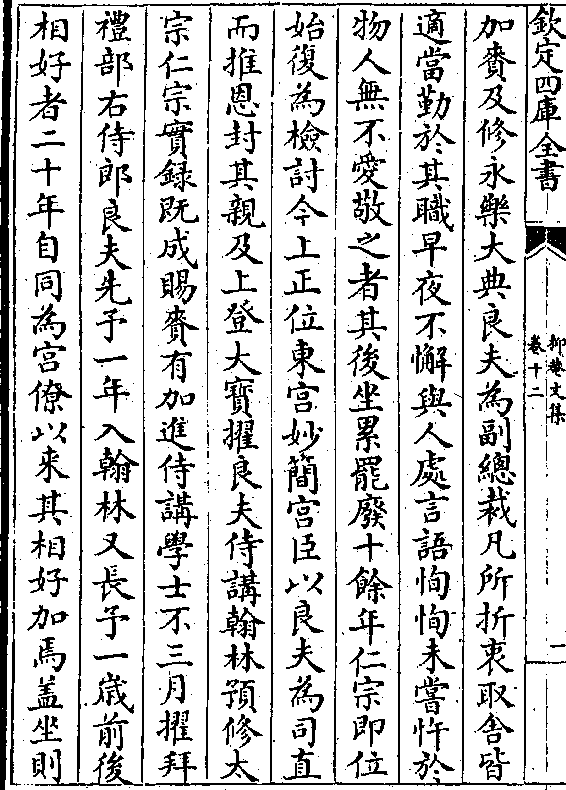 欽定四庫全書
抑菴文集
卷十二
二
加賚及修永樂大典良夫為副總裁凡所折衷取舍皆
適當勤於其職早夜不懈與人處言語恂恂未嘗忤於
物人無不愛敬之者其後坐累罷廢十餘年仁宗即位
始復為檢討今上正位東宮妙簡宮臣以良夫為司直
而推恩封其親及上登大寳擢良夫侍講翰林預修太
宗仁宗實録既成賜賚有加進侍講學士不三月擢拜
禮部右侍郎良夫先予一年入翰林又長予一歲前後
相好者二十年自同為宮僚以來其相好加焉蓋坐則